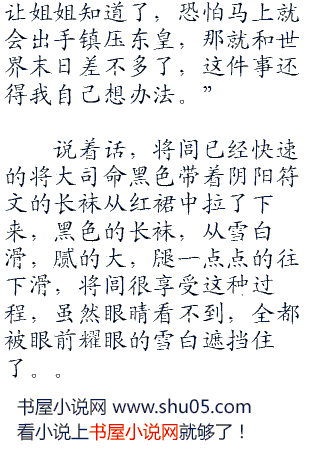 让姐姐知道了，恐怕马上就
会出手镇压东皇，那就和世
界末日差不多了，这件事还
得我自己想办法。”
说着话，将闾已经快速
的将大司命黑色带着阴阳符
文的长袜从红裙中拉了下
来，黑色的长袜，从雪白
滑，腻的大，腿一点点的往
下滑，将闾很享受这种过
程，虽然眼睛看不到，全都
被眼前耀眼的雪白遮挡住
了。。
书屋小说网 www.shu05.com
看小说上书屋小说网就够了！